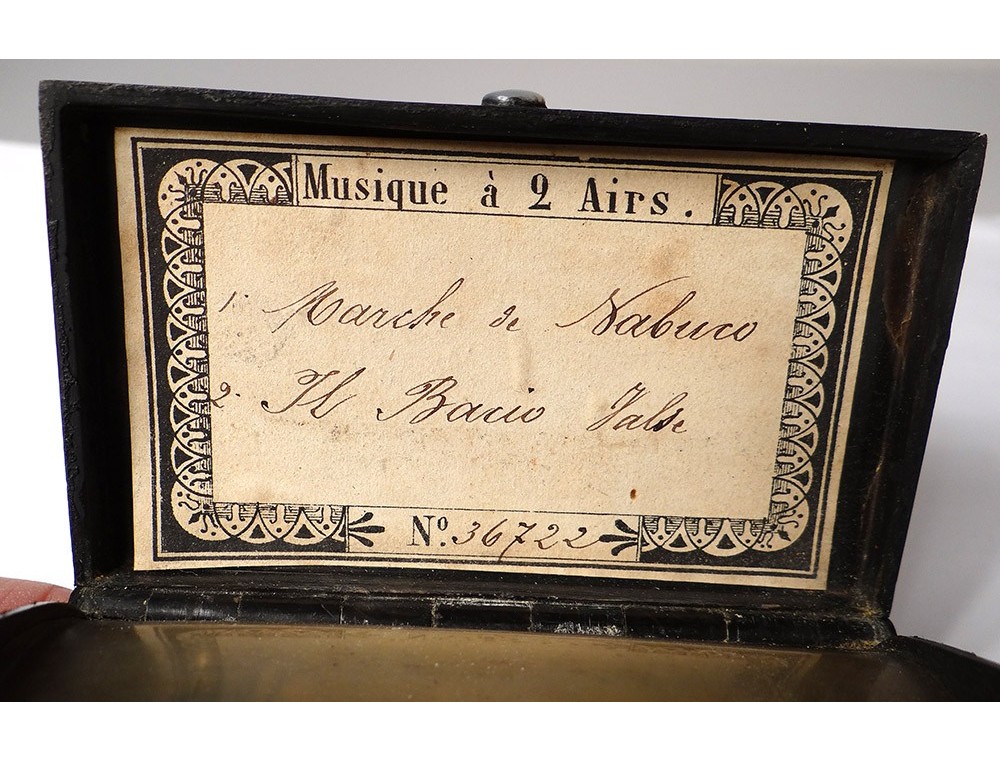 Musique à 2 Airs.
1. Marche de Nabuco
2. Il Bacio Valse
No. 36722